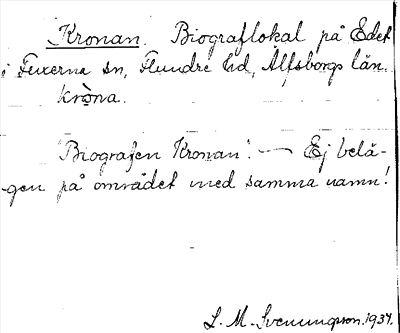 Kronan. Biograflokal på Edet
i Fuxerna sn, Flundre hd, Älfsborgs län.
kròna.
"Biografen Kronan". — Ej belä-
gen på området med samma namn!
L. M. Svenungsson. 1937.